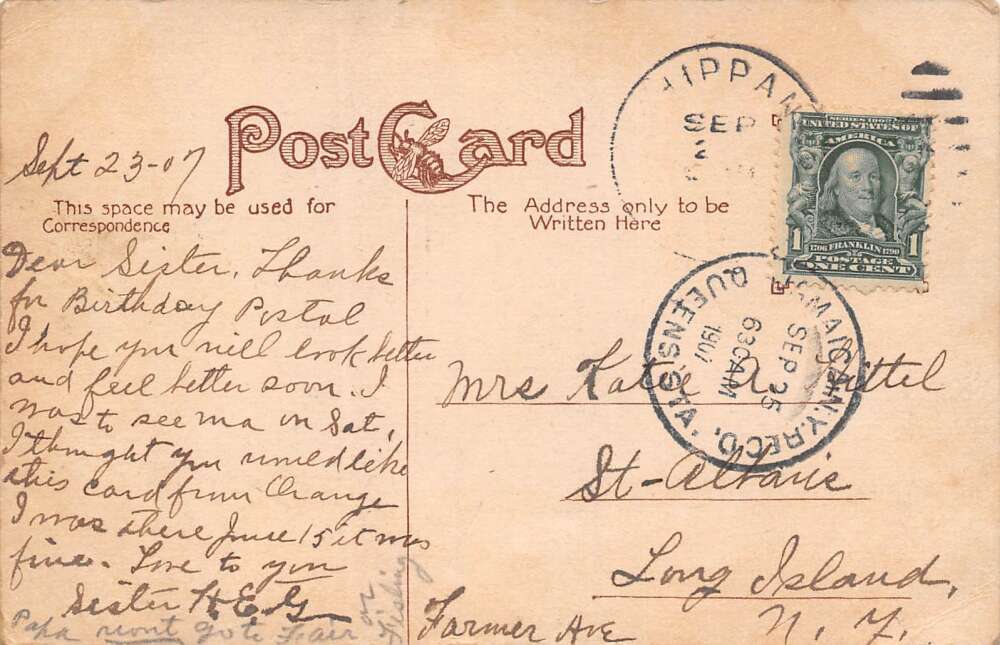 Post Card
Sept 23-07
This space may be used for
Correspondence
The Address only to be
Written Here
HIPPAN
SEP
2
SERIES 1902
UNITED STATES OF
AMERICA
1 1706 FRANKLIN 1790 1
POSTAGE
ONE CENT
JAMAICA, N.Y. REC'D.
QUEENS STA.
SEP 25
630AM
1907
Dear Sister, Thanks
for Birthday Postal
I hope you will look better
and feel better soon. I
was to see ma on Sat,
I thought you would like
this card from Orange
I was there June 15 it was
fine. Love to you
Sister H.E.G.
Papa wont go to Fair or
Fishing
Mrs Kate A.
St-Albans
Long Island,
Farmer Ave N. Y.